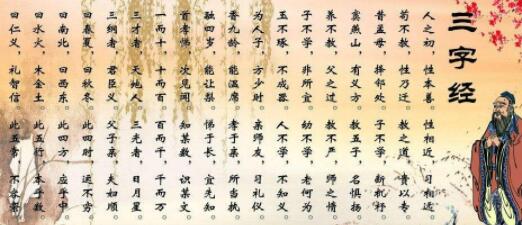 三字经
人之初,性本善。性相近,习相远。
苟不教,性乃迁。教之道,贵以专。
昔孟母,择邻处。子不学,断机杼。
窦燕山,有义方。教五子,名惧扬。
养不教,父之过。教不严,师之惰。
子不学,非所宜。幼不学,老何为。
玉不琢,不成器。人不学,不知义。
为人子,方少时。亲师友,习礼仪。
香九龄,能温席。孝于亲,所当执。
融四岁,能让梨。悌于长,宜先知。
首孝悌,次见闻。知某数,识某文。
一而十,十而百。百而千,千而万。
三才者,天地人。三光者,日月星。
三纲者,君臣义。父子亲,夫妇顺。
曰春夏,曰秋冬。此四时,运不穷。
曰南北,曰西东。此四方,应乎中。
曰水火,木金土。此五行,本乎数。
曰仁义,礼智信。此五常,不容紊。